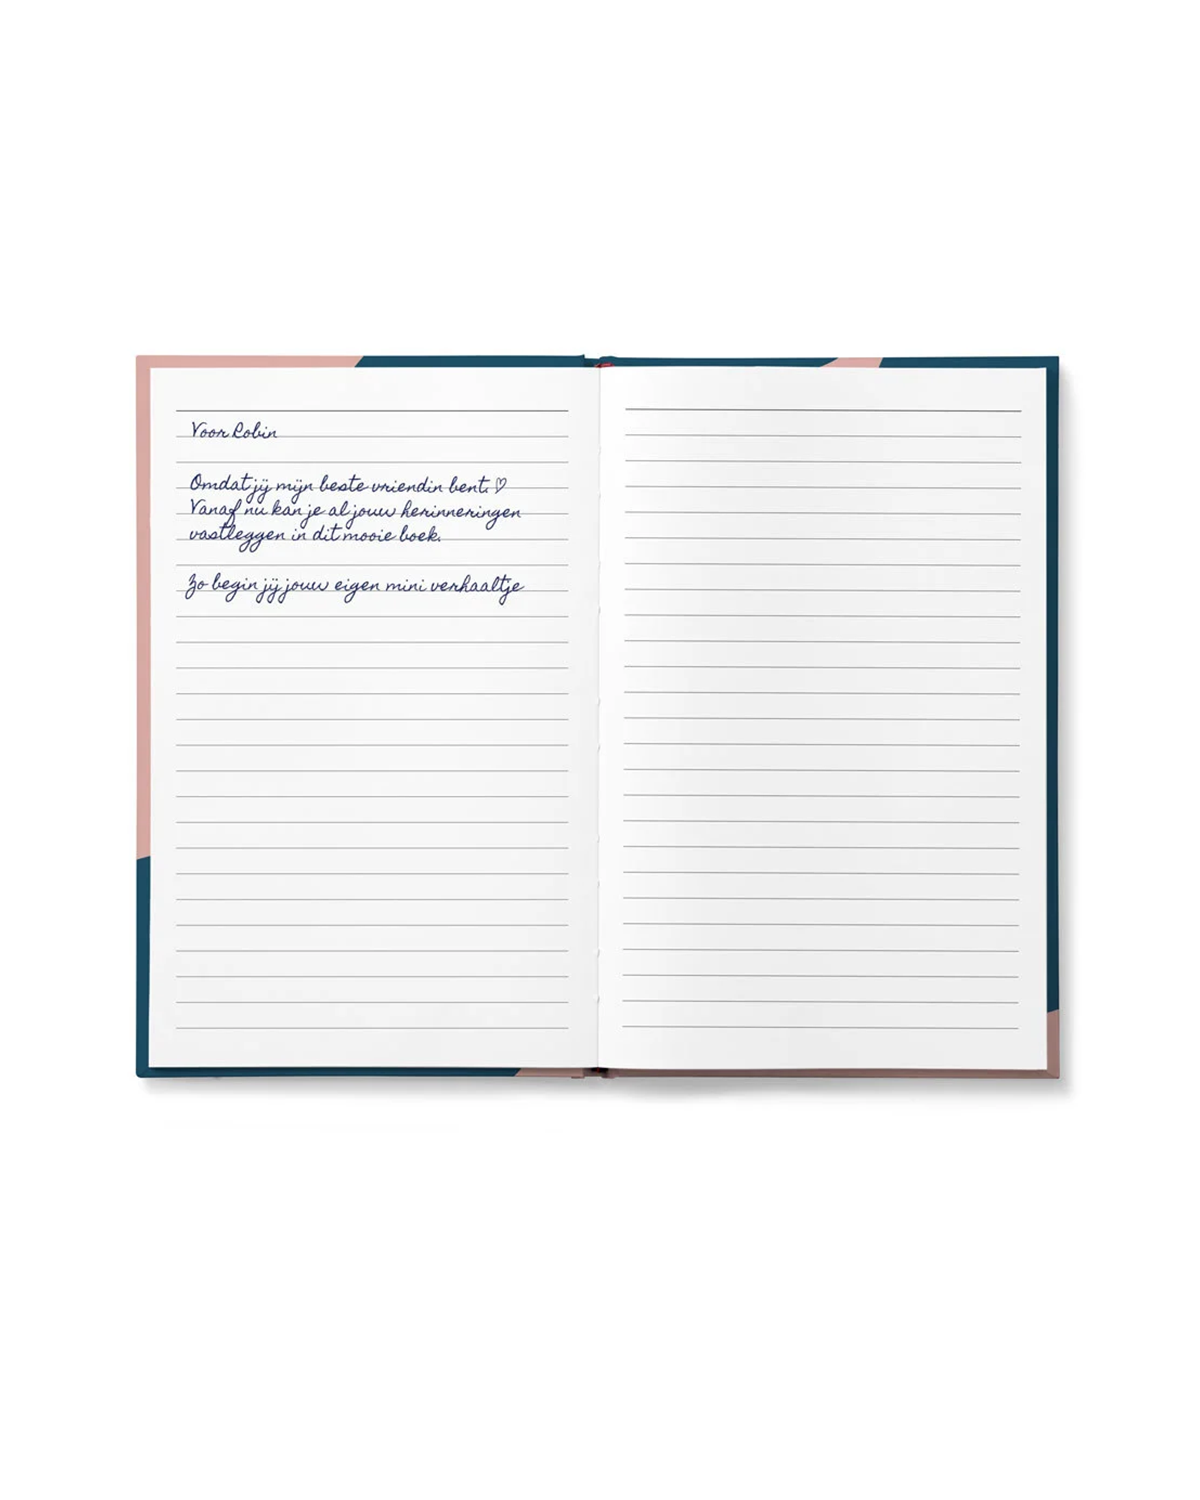 Voor Robin
Omdat jij mijn beste vriendin bent. ♡
Vanaf nu kan je al jouw herinneringen
vastleggen in dit mooie boek.
Zo begin jij jouw eigen mini verhaaltje